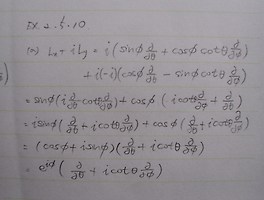 Ex 2.5-10
(a) Lx + iLy = i(sinφ ∂/∂θ + cosφ cotθ ∂/∂φ)
+ i(-i)(cosφ ∂/∂θ - sinφ cotθ ∂/∂φ)
= sinφ(i ∂/∂θ cotθ ∂/∂φ) + cosφ(icotθ ∂/∂φ + ∂/∂θ)
= isinφ(∂/∂θ + icotθ ∂/∂φ) + cosφ(∂/∂θ + icotθ ∂/∂φ)
= (cosφ + isinφ)(∂/∂θ + icotθ ∂/∂φ)
= e^iφ(∂/∂θ + icotθ ∂/∂φ)